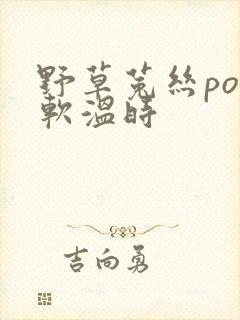 野草菟絲po
軟溫時
吉向勇